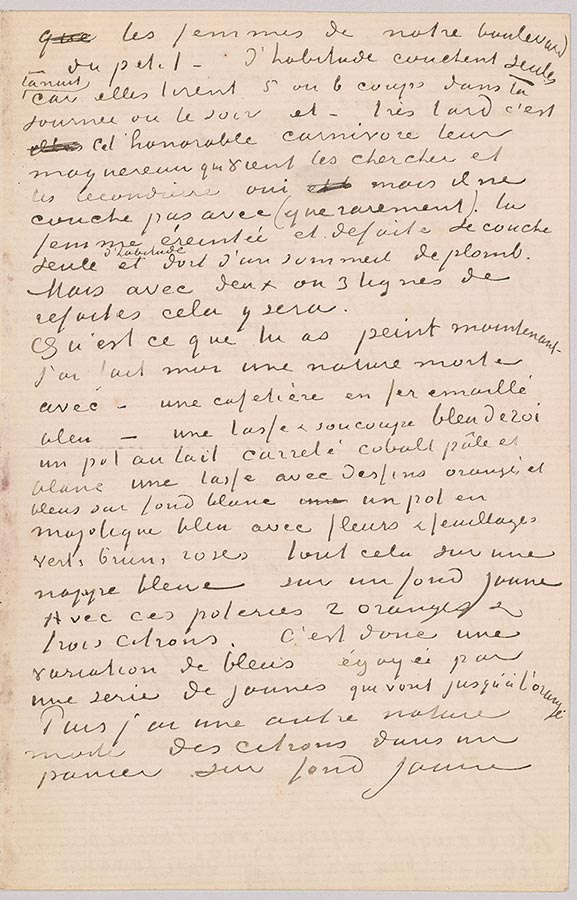 que les femmes de notre boulevard
du petit – d'habitude couchent seules
la nuit
car elles tirent 5 ou 6 coups dans la
journée ou le soir et – très tard c'est
cet honorable carnivore leur
maquereau qui vient les chercher et
les reconduire oui mais il ne
couche pas avec (que rarement). la
femme éreintée et defaite se couche
d'habitude
seule et dort d'un sommeil de plomb.
Mais avec deux ou 3 lignes de
refaites cela y sera.
Qu'est ce que tu as peint maintenant–
j'ai fait moi une nature morte
avec – une cafetière en fer emaillé
bleu – une tasse & soucoupe bleu de roi
un pot au lait carrelé cobalt pâle et
blanc une tasse avec dessins orangé et
bleus sur fond blanc un pot en
majolique bleu avec fleurs & feuillages
verts bruns roses tout cela sur une
nappe bleue sur un fond jaune
Avec ces poteries 2 oranges &
trois citrons. C'est donc une
variation de bleus égayée par
une serie de jaunes qui vont jusqu'à l'orangé
Puis j'ai une autre nature
morte des citrons dans un
panier sur fond jaune